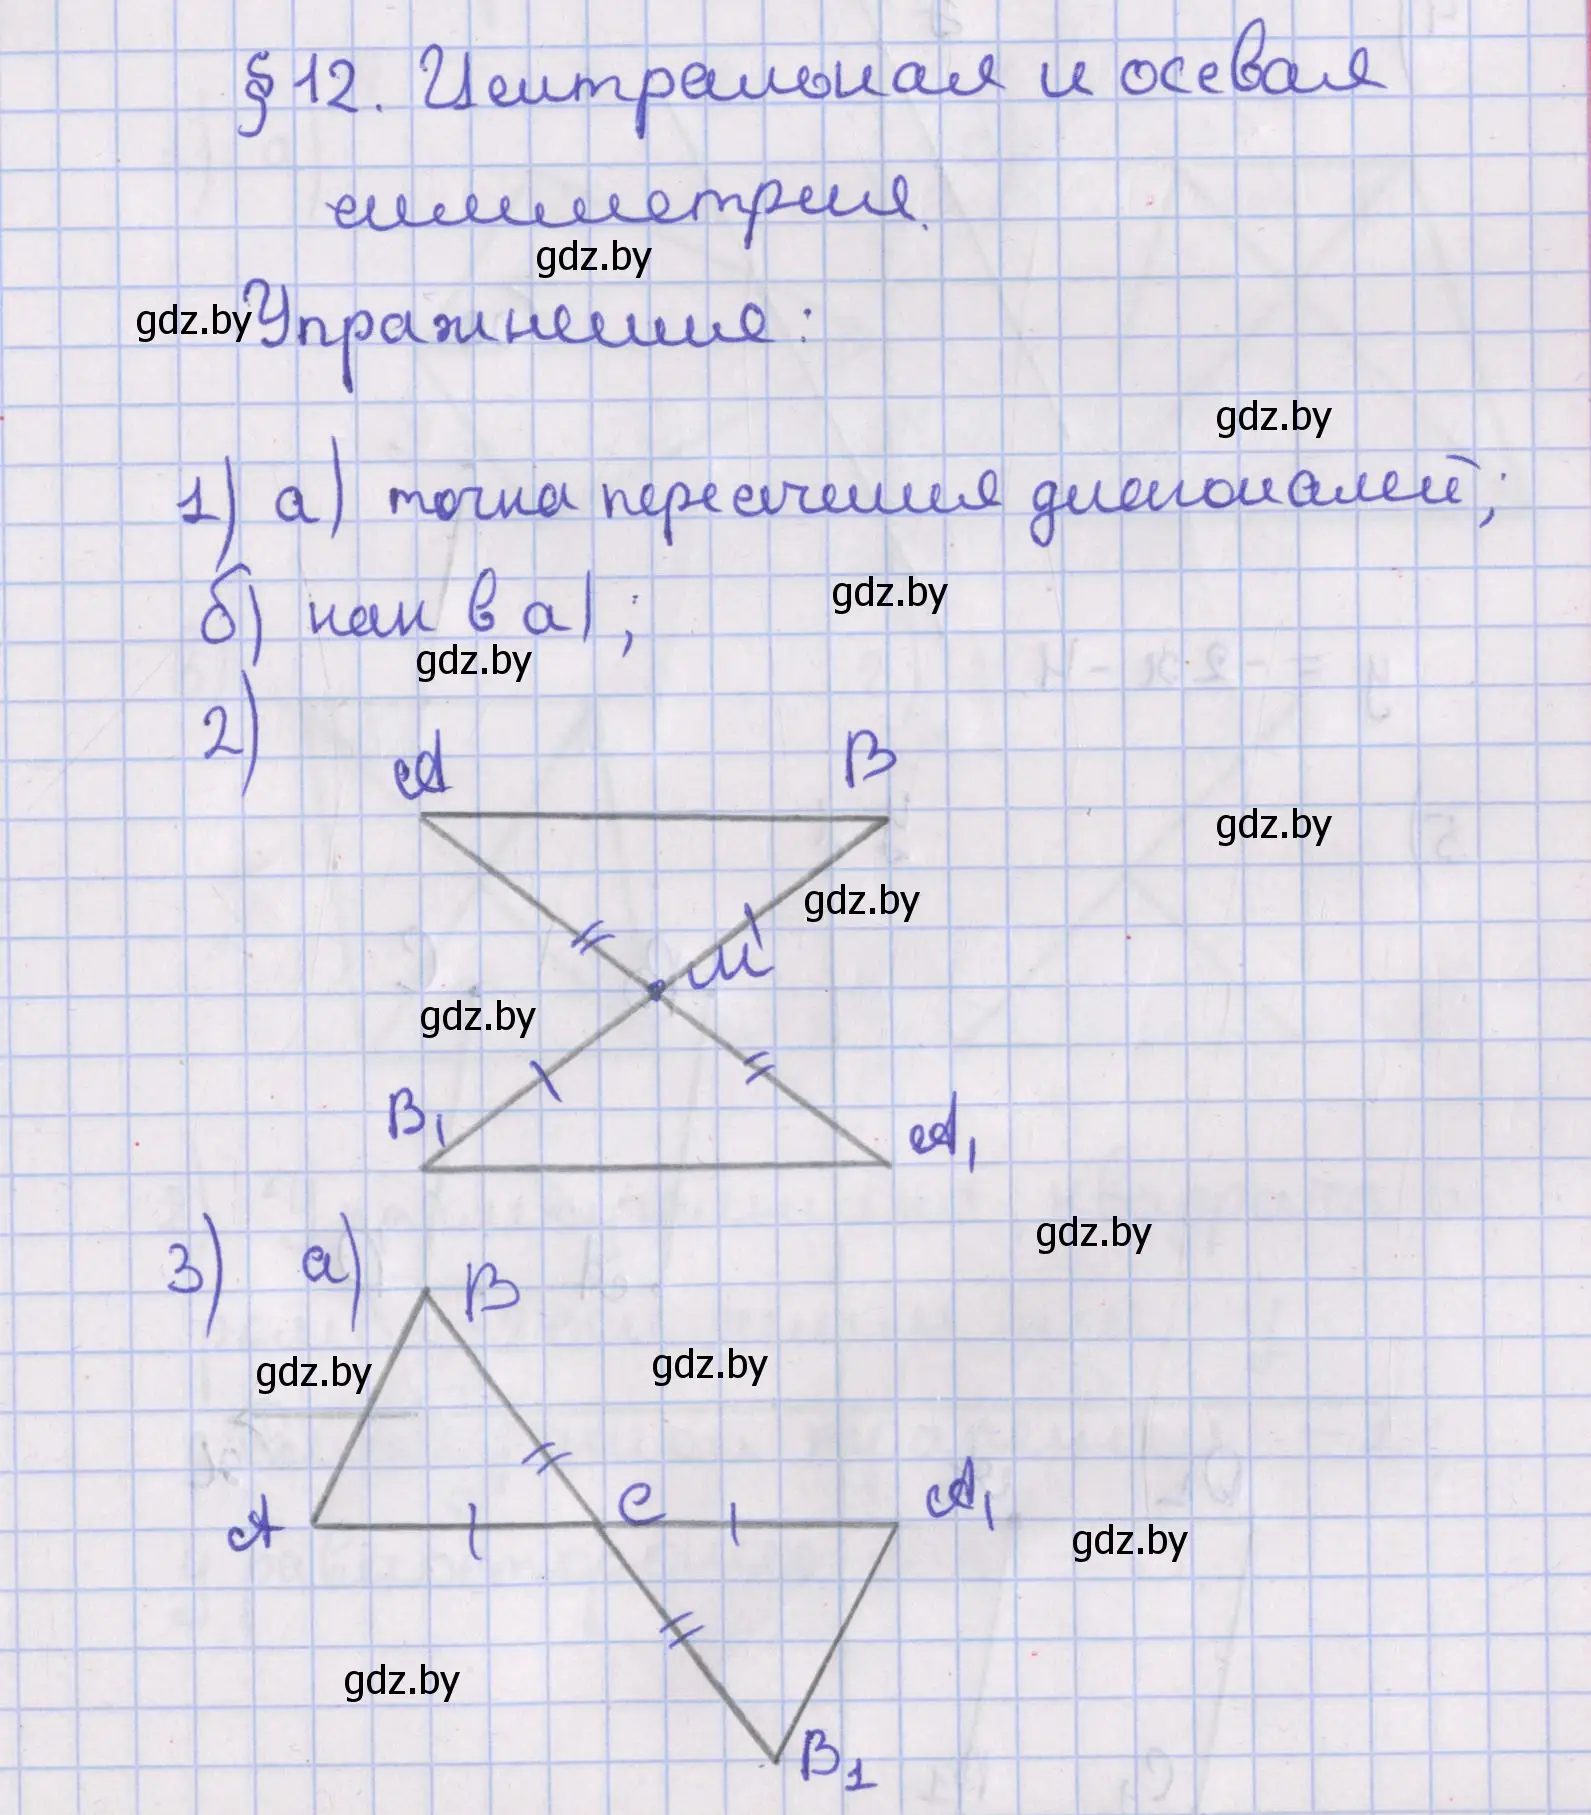 § 12. Центральная и осевая
симметрия.
gdz.by
gdz.by Упражнения:
gdz.by
1) а) точка пересечения диагоналей;
gdz.by
б) как в а);
gdz.by
2)
A B
gdz.by
gdz.by
M
gdz.by
B1 A1
gdz.by
3) а) B
gdz.by gdz.by
A C A1
gdz.by
gdz.by
B1